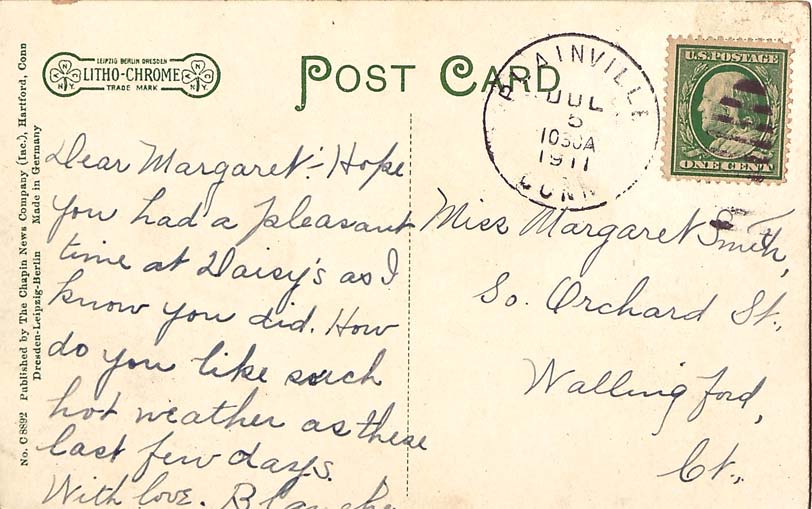 LEIPZIG BERLIN DRESDEN
LITHO-CHROME
TRADE MARK
N Y
POST CARD
PLAINVILLE
JUL
5
1030A
1911
CONN
U.S. POSTAGE
ONE CENT
No. C 8892 Published by The Chapin News Company (Inc.), Hartford, Conn
Dresden-Leipzig-Berlin Made in Germany
Dear Margaret:- Hope
you had a pleasant
time at Daisy's as I
know you did. How
do you like such
hot weather as these
last few days.
With love. Blanche
Miss Margaret Smith,
So. Orchard St.,
Wallingford,
Ct.,